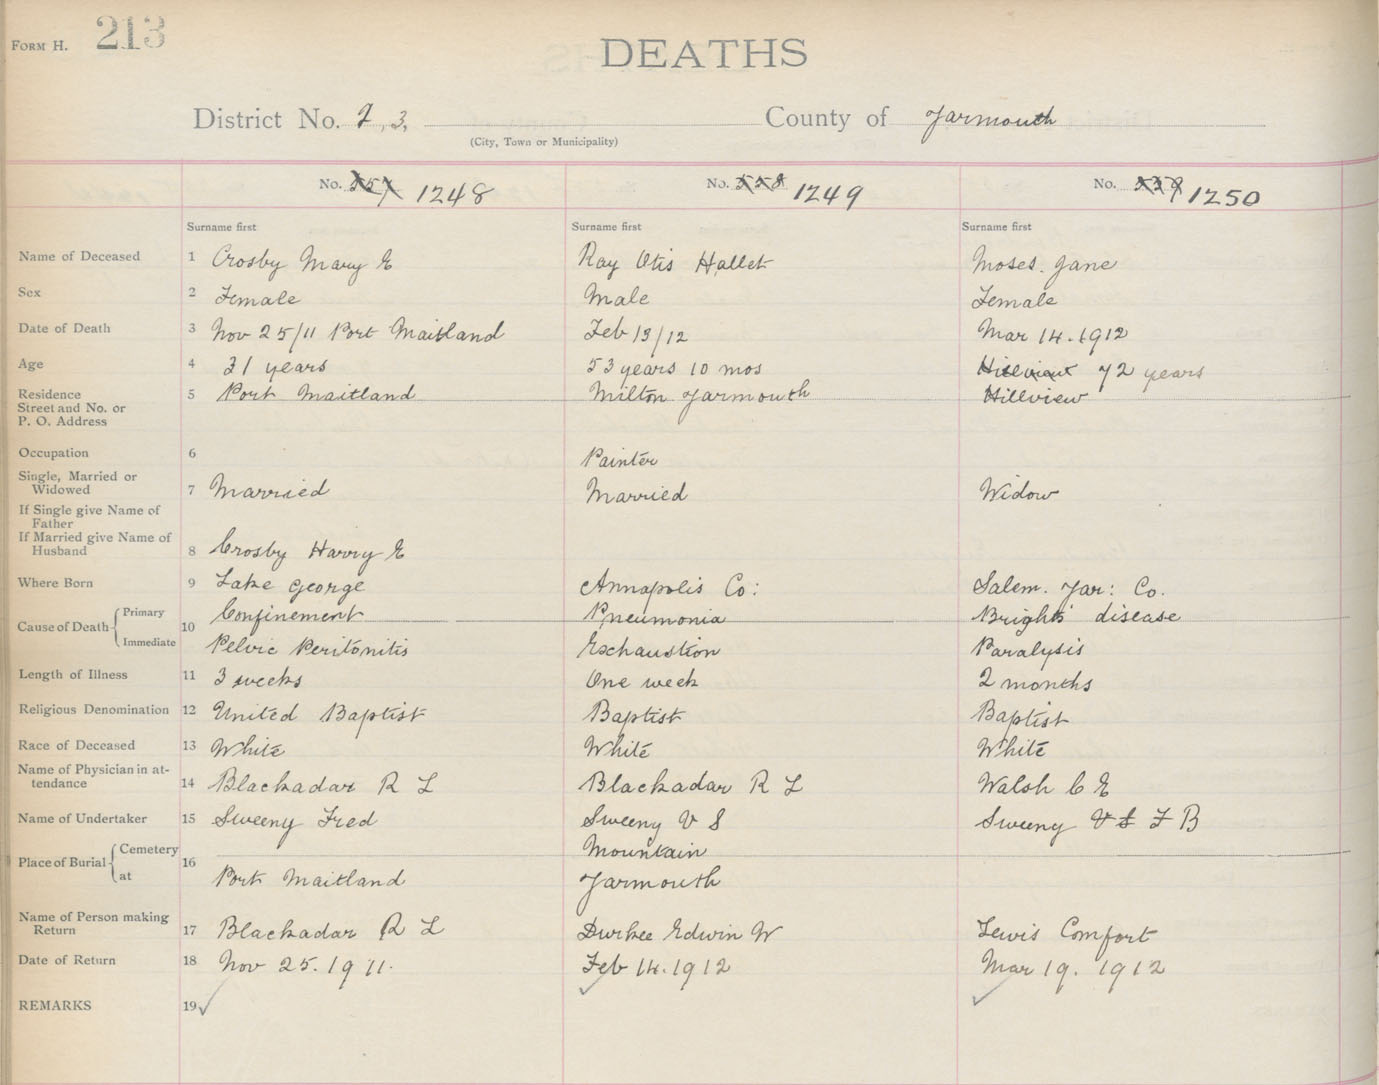 FORM H. 213
DEATHS
District No. 2, 3, County of Yarmouth
(City, Town or Municipality)
No. 557 1248 No. 558 1249 No. 559 1250
Surname first Surname first Surname first
Name of Deceased 1 Crosby Mary E Ray Otis Hallet Moses. Jane
Sex 2 Female Male Female
Date of Death 3 Nov 25/11 Port Maitland Feb 13/12 Mar 14.1912
Age 4 31 years 53 years 10 mos Hillview 72 years
Residence 5 Port Maitland Milton Yarmouth Hillview
Street and No. or
P. O. Address
Occupation 6 Painter
Single, Married or
Widowed 7 Married Married Widow
If Single give Name of
Father
If Married give Name of
Husband 8 Crosby Harry E
Where Born 9 Lake George Annapolis Co: Salem. Yar: Co.
Cause of Death Primary 10 Confinement Pneumonia Brights' disease
Immediate Pelvic Peritonitis Exhaustion Paralysis
Length of Illness 11 3 weeks One week 2 months
Religious Denomination 12 United Baptist Baptist Baptist
Race of Deceased 13 White White White
Name of Physician in at-
tendance 14 Blackadar R L Blackadar R L Walsh C E
Name of Undertaker 15 Sweeny Fred Sweeny V S Sweeny V S F B
Place of Burial Cemetery 16 Mountain
at Port Maitland Yarmouth
Name of Person making
Return 17 Blackadar R L Durkee Edwin W Lewis Comfort
Date of Return 18 Nov 25. 1911. Feb 14.1912 Mar 19. 1912
REMARKS 19